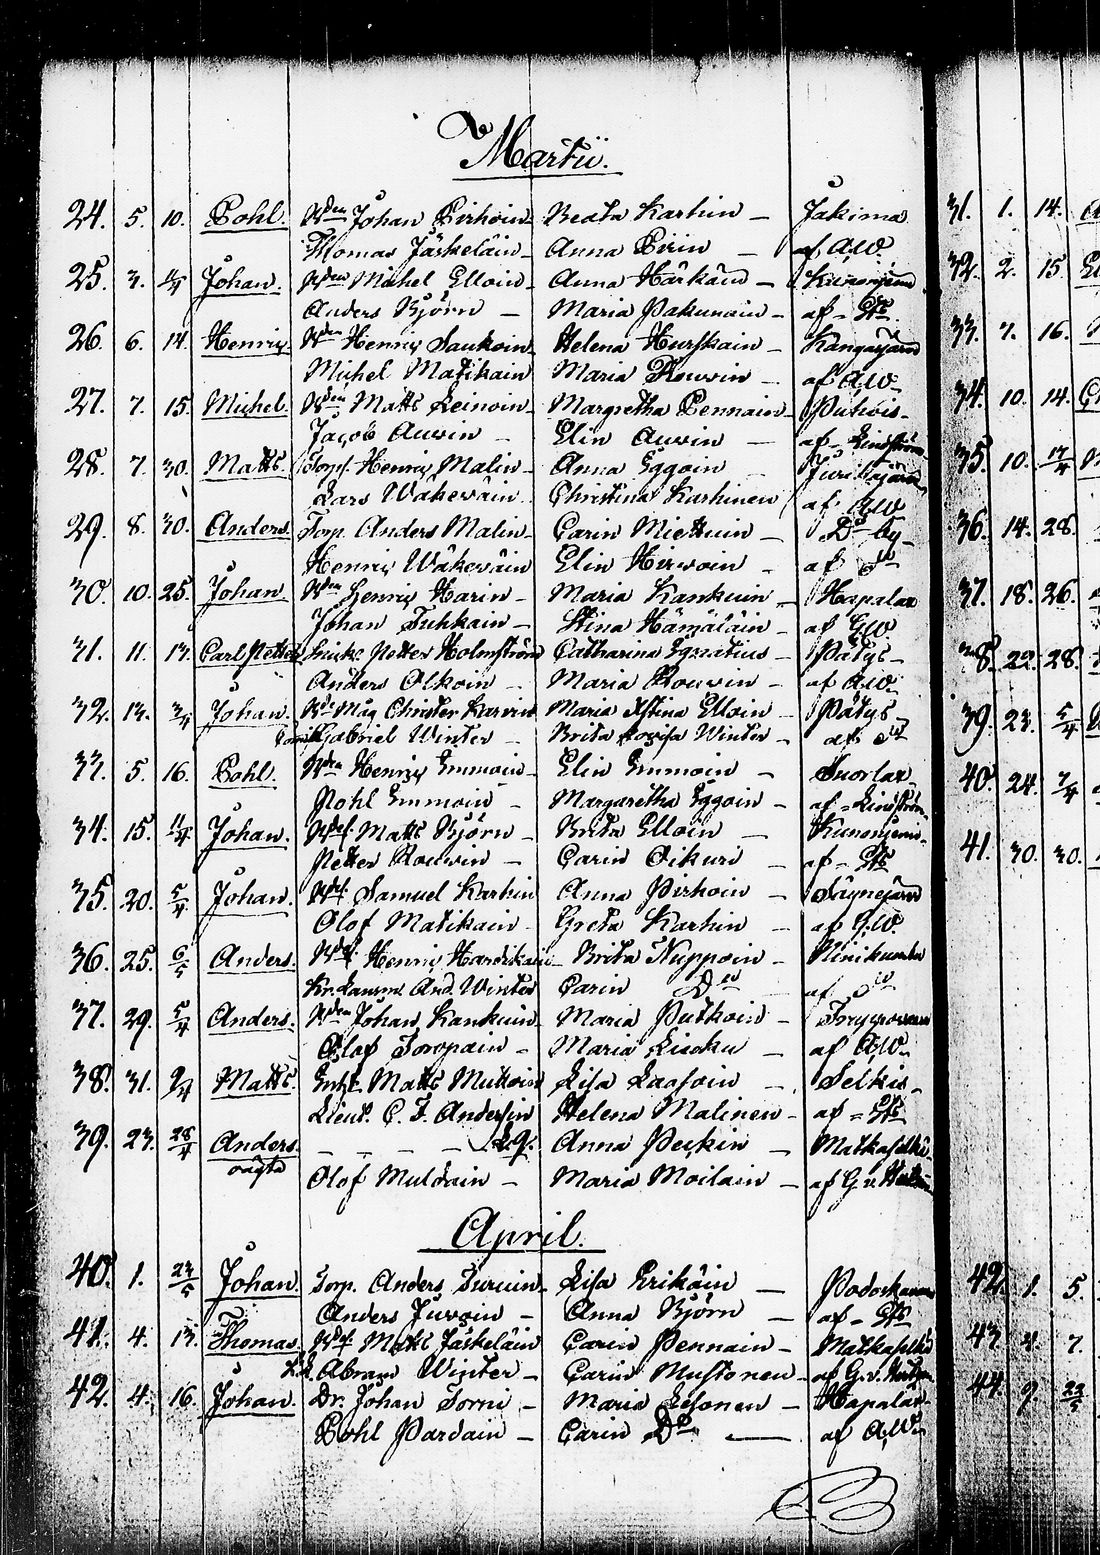 Martii.
24. 5. 10. Pohl. Bden Johan Pirhoin Beata Karhin — Jakima
Thomas Jäskeläin Anna Pirin — af A.W.
25. 3. Johan. Bden Michel Elloin Anna Härkäin —
Anders Björn — Maria Pakunain — af Sts
26. 6. 14. Henric Bden Henric Saukoin Helena Hurskain — Kangasjärvi
Michel Matikain Maria Rouvin — af A.W.
27. 7. 15. Michel. Bden Matts Leinoin Margretha Pennain — Puhois
Jacob Auvin — Elin Auvin — af Lindström
28. 7. 30. Matts. Torp. Henric Malin Anna Eggoin —
Lars Wäkeväin Christina Karhinen af A.W
29. 8. 30. Anders. Torp. Anders Malin Carin Miettuin — Do by
Henric Wäkeväin Elin Hirvoin — af do
30. 10. 25. Johan Bden Henric Harin Maria Kankuin — Hapalax
Johan Tuhkain — Stina Hämäläin — af G.W.
31. 11. 13. Carl Petter Petter Holmström Catharina Ignatius — Pätys
Anders Olkoin — Maria Rouvin — af A.W.
32. 13. 3/4 Johan. Mag Christer Karvin Maria Xstina Elloin — Pätys
Gabriel Winter — Brita Lovisa Winter — af do
33. 5. 16. Pohl. Bden Henric Emmoin Elin Emmoin — Suorlax
Pohl Emmoin — Margaretha Eggoin — af Lindström
34. 15. 11/4 Johan. Matts Björn — Brita Elloin —
Petter Rouvin — Carin Oikuri — af Sts
35. 20. 5/4 Johan. Samuel Karhin Anna Pirhoin —
Olof Matikain — Greta Karhin — af G.W.
36. 25. 6/5 Anders. Henric Hardikain Brita Nuppoin —
And. Winter Carin Do af do
37. 29. 5/4 Anders. Bden Johan Kankuin Maria Putkoin —
Olof Soropain — Maria Liuku — af A.W.
38. 31. 9/4 Matts. Matts Muttoin Lisa Lassoin — Selkis
Lieut. C. F. Andersin Helena Malinen — af Sts
39. 23. 28/4 Anders. — — — — Anna Peskin Matkaselkä
oägta Olof Muldain — Maria Moilain — af G. v.
April.
40. 1. 23/5 Johan. Torp. Anders Turuin Lisa Erikäin —
Anders Jussoin — Anna Björn — af Sts
41. 4. 13. Thomas. Matts Jäskeläin Carin Pennain — Matkaselkä
Abram Winter — Carin Mustonen — af G. v.
42. 4. 16. Johan. Dr. Johan Torni — Maria Lesonen — Hapalax
Pohl Pardain — Carin Do — af A.W.
31. 1. 14.
32. 2. 15.
33. 7. 16.
34. 10. 14.
35. 10. 17/4
36. 14. 28.
37. 18. 26.
38. 22. 28.
39. 23. 5/4
40. 24. 7/4
41. 30. 30.
42. 1. 5.
43. 4. 7.
44. 9. 22/5